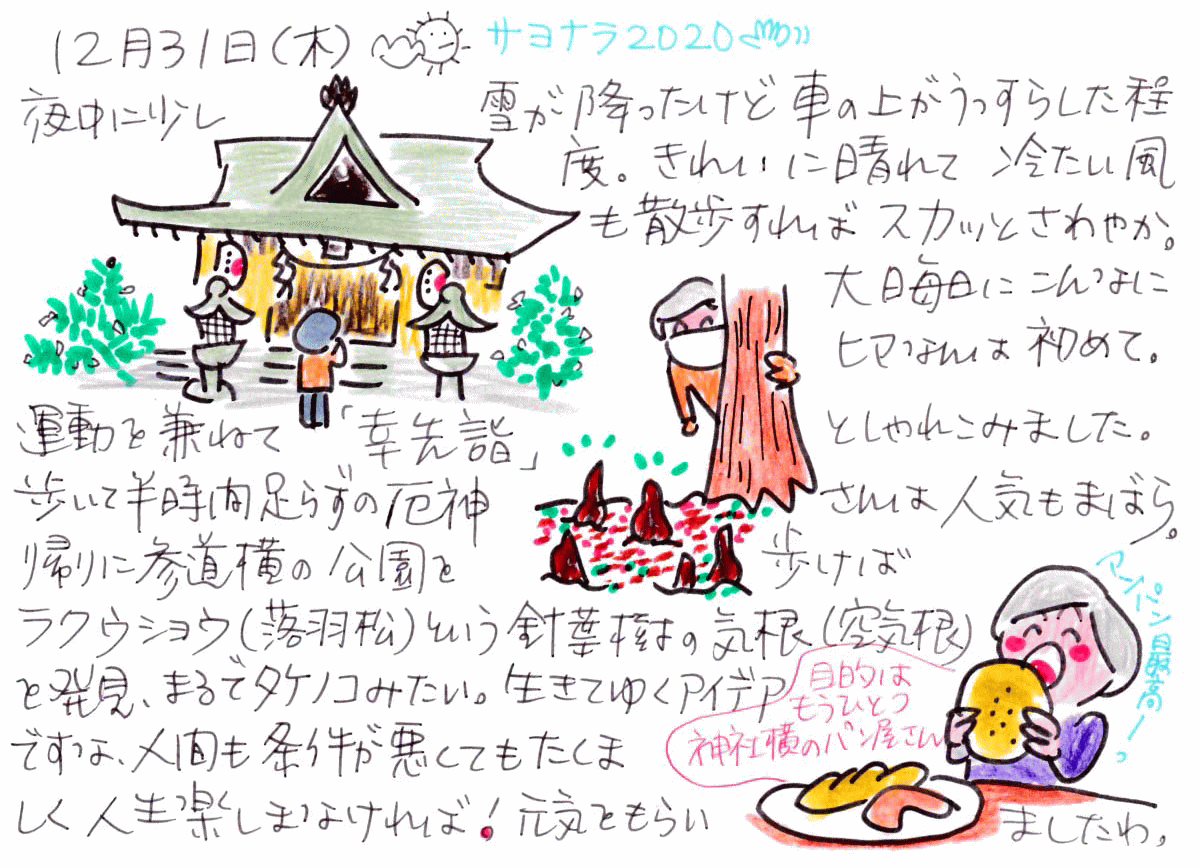 12月31日(木)
サヨナラ2020
夜中に少し 雪が降ったけど車の上がうっすらした程
度。きれいに晴れて 冷たい風
も散歩すれば スカッとさわやか。
大晦日にこんなに
ヒマなんは 初めて。
運動を兼ねて「幸先詣」 としゃれこみました。
歩いて半時間足らずの厄神 さんは人気もまばら。
帰りに参道横の公園を 歩けば
ラクウショウ(落羽松)という針葉樹の気根(空気根)
を発見、まるでタケノコみたい。生きてゆくアイデア
ですな、人間も条件が悪くてもたくま
しく人生楽しまなければ!元気をもらい ましたわ。
アンパン最高ー。
目的は
もうひとつ
神社横のパン屋さん